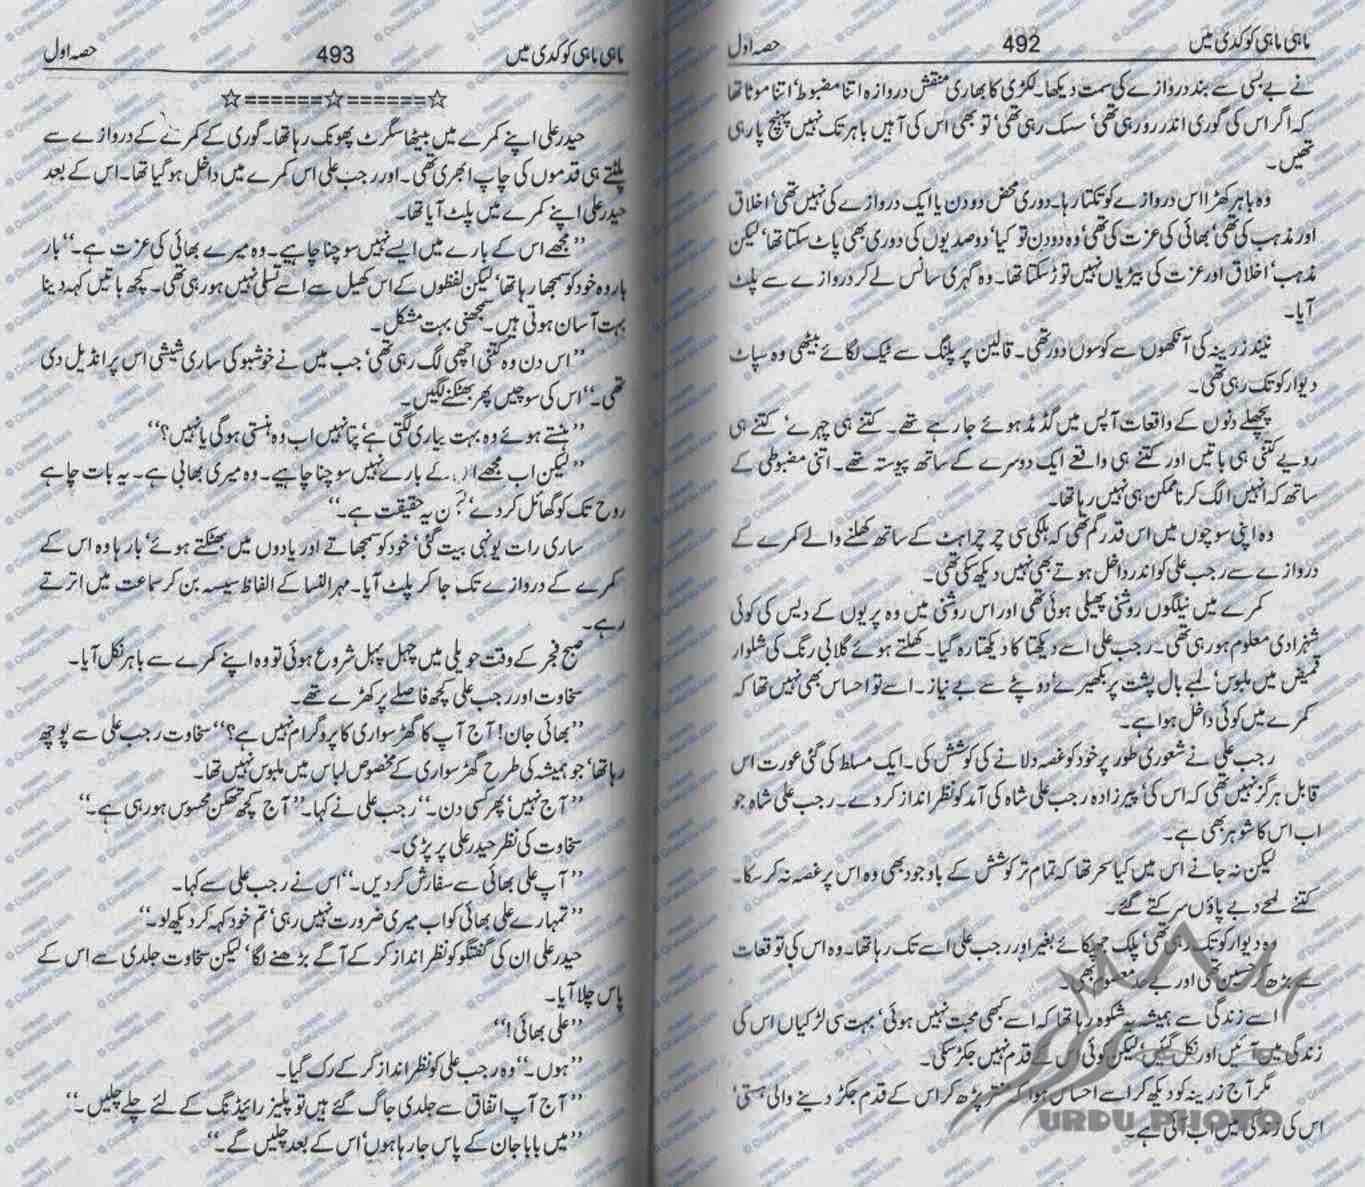 ماہی ماہی کوکدی میں 492 حصہ اول
نے بے بسی سے بند دروازے کی سمت دیکھا۔ لکڑی کا بھاری منقش دروازہ اتنا مضبوط‘ اتنا موٹا تھا
کہ اگر اس کی گوری اندر رو رہی تھی‘ سسک رہی تھی‘ تو بھی اس کی آہیں باہر تک نہیں پہنچ پا رہی
تھیں۔
وہ باہر کھڑا اس دروازے کو تکتا رہا۔ دوری محض دو دن یا ایک دروازے کی نہیں تھی‘ اخلاق
اور مذہب کی تھی‘ بھائی کی عزت کی تھی‘ وہ دو دن تو کیا‘ دو صدیوں کی دوری بھی پاٹ سکتا تھا‘ لیکن
مذہب‘ اخلاق اور عزت کی بیڑیاں نہیں توڑ سکتا تھا۔ وہ گہری سانس لے کر دروازے سے پلٹ
آیا۔
نیند زرینہ کی آنکھوں سے کوسوں دور تھی۔ قالین پر پلنگ سے ٹیک لگائے بیٹھی وہ سپاٹ
دیوار کو تک رہی تھی۔
پچھلے دنوں کے واقعات آپس میں گڈمڈ ہوئے جا رہے تھے۔ کتنے ہی چہرے‘ کتنے ہی
رویے کتنی ہی باتیں اور کتنے ہی واقعے ایک دوسرے کے ساتھ پیوستہ تھے۔ اتنی مضبوطی کے
ساتھ کہ انہیں الگ کرنا ممکن ہی نہیں رہا تھا۔
وہ اپنی سوچوں میں اس قدر گم تھی کہ ہلکی سی چرچراہٹ کے ساتھ کھلنے والے کمرے کے
دروازے سے رجب علی کو اندر داخل ہوتے بھی نہیں دیکھ سکی تھی۔
کمرے میں نیلگوں روشنی پھیلی ہوئی تھی اور اس روشنی میں وہ پریوں کے دیس کی کوئی
شہزادی معلوم ہو رہی تھی۔ رجب علی اسے دیکھتا کا دیکھتا رہ گیا۔ کھلتے ہوئے گلابی رنگ کی شلوار
قمیض میں ملبوس‘ لمبے بال پشت پر بکھیرے‘ دوپٹے سے بے نیاز۔ اسے تو احساس بھی نہیں تھا کہ
کمرے میں کوئی داخل ہوا ہے۔
رجب علی نے شعوری طور پر خود کو غصہ دلانے کی کوشش کی۔ ایک مسلط کی گئی عورت اس
قابل ہرگز نہیں تھی کہ اس کی‘ پیرزادہ رجب علی شاہ کی آمد کو نظر انداز کر دے۔ رجب علی شاہ جو
اب اس کا شوہر بھی ہے۔
لیکن نہ جانے اس میں کیا سحر تھا کہ تمام تر کوشش کے باوجود بھی وہ اس پر غصہ نہ کر سکا۔
کتنے لمحے دبے پاؤں سرکتے گئے۔
وہ دیوار کو تک رہی تھی‘ پلک جھپکائے بغیر اور رجب علی اسے تک رہا تھا۔ وہ اس کی توقعات
سے بڑھ کر حسین تھی اور بے حد معصوم بھی۔
اسے زندگی سے ہمیشہ یہ شکوہ رہا تھا کہ اسے کبھی محبت نہیں ہوئی‘ بہت سی لڑکیاں اس کی
زندگی میں آئیں اور نکل گئیں‘ لیکن کوئی اس کے قدم نہیں جکڑ سکی۔
مگر آج زرینہ کو دیکھ کر اسے احساس ہوا کہ منتر پڑھ کر اس کے قدم جکڑ دینے والی ہستی‘
اس کی زندگی میں اب آئی ہے۔
URDU PHOTO
ماہی ماہی کوکدی میں 493 حصہ اول
☆======☆======☆
حیدر علی اپنے کمرے میں بیٹھا سگرٹ پھونک رہا تھا۔ گوری کے کمرے کے دروازے سے
پلٹتے ہی قدموں کی چاپ ابھری تھی۔ اور رجب علی اس کمرے میں داخل ہو گیا تھا۔ اس کے بعد
حیدر علی اپنے کمرے میں پلٹ آیا تھا۔
’’مجھے اس کے بارے میں ایسے نہیں سوچنا چاہیے۔ وہ میرے بھائی کی عزت ہے۔‘‘ بار
بار وہ خود کو سمجھا رہا تھا‘ لیکن لفظوں کے اس کھیل سے اسے تسلی نہیں ہو رہی تھی۔ کچھ باتیں کہہ دینا
بہت آسان ہوتی ہیں۔ سمجھنی بہت مشکل۔
’’اس دن وہ کتنی اچھی لگ رہی تھی‘ جب میں نے خوشبو کی ساری شیشی اس پر انڈیل دی
تھی۔‘‘ اس کی سوچیں پھر بھٹکنے لگیں۔
’’ہنستے ہوئے وہ بہت پیاری لگتی ہے‘ پتا نہیں اب وہ ہنستی ہو گی یا نہیں؟‘‘
’’لیکن اب مجھے کے بارے نہیں سوچنا چاہیے۔ وہ میری بھابی ہے۔ یہ بات چاہے
روح تک کو گھائل کر دے‘ یہ حقیقت ہے۔‘‘
ساری رات یونہی بیت گئی‘ خود کو سمجھاتے اور یادوں میں بھٹکتے ہوئے‘ بارہا وہ اس کے
کمرے کے دروازے تک جا کر پلٹ آیا۔ مہرالنسا کے الفاظ سیسہ بن کر سماعت میں اترتے
رہے۔
صبح فجر کے وقت حویلی میں چہل پہل شروع ہوئی تو وہ اپنے کمرے سے باہر نکل آیا۔
سخاوت اور رجب علی کچھ فاصلے پر کھڑے تھے۔
’’بھائی جان! آج آپ کا گھڑ سواری کا پروگرام نہیں ہے؟‘‘ سخاوت رجب علی سے پوچھ
رہا تھا‘ جو ہمیشہ کی طرح گھڑ سواری کے مخصوص لباس میں ملبوس نہیں تھا۔
’’آج نہیں‘ پھر کسی دن۔‘‘ رجب علی نے کہا۔ ’’آج کچھ تھکن محسوس ہو رہی ہے۔‘‘
سخاوت کی نظر حیدر علی پر پڑی۔
’’آپ علی بھائی سے سفارش کر دیں۔‘‘ اس نے رجب علی سے کہا۔
’’تمہارے علی بھائی کو اب میری ضرورت نہیں رہی‘ تم خود کہہ کر دیکھ لو۔‘‘
حیدر علی ان کی گفتگو کو نظر انداز کر کے آگے بڑھنے لگا‘ لیکن سخاوت جلدی سے اس کے
پاس چلا آیا۔
’’علی بھائی!‘‘
’’ہوں۔‘‘ وہ رجب علی کو نظر انداز کر کے رک گیا۔
’’آج آپ اتفاق سے جلدی جاگ گئے ہیں تو پلیز رائیڈنگ کے لئے چلے چلیں۔‘‘
’’میں بابا جان کے پاس جا رہا ہوں‘ اس کے بعد چلیں گے۔‘‘